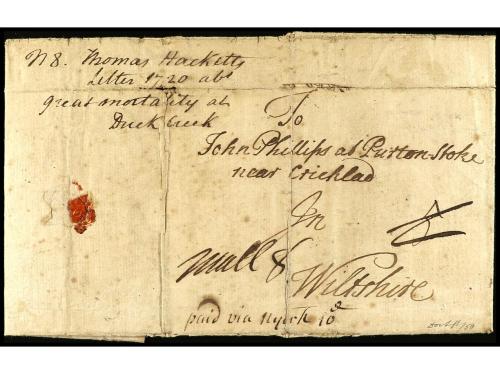 N8. Thomas Hacketts
Letter 1720 abt
great mortality at
Duck Creek
To
John Phillips at Purton Stoke
near Cricklad
In
Wiltshire
paid via NYork 10d